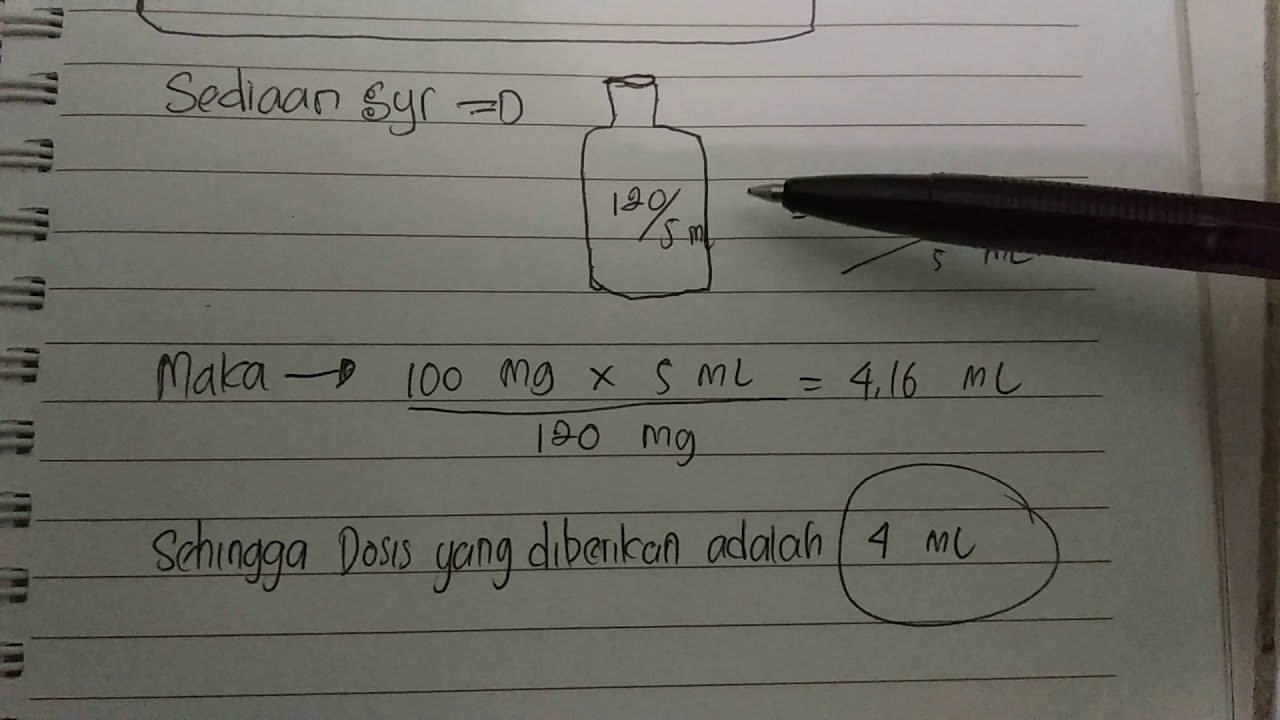 Sediaan Syr =D
120/5 ml
5 ml
Maka → 100 mg x 5 ml = 4,16 ml
120 mg
Sehingga Dosis yang diberikan adalah 4 ml